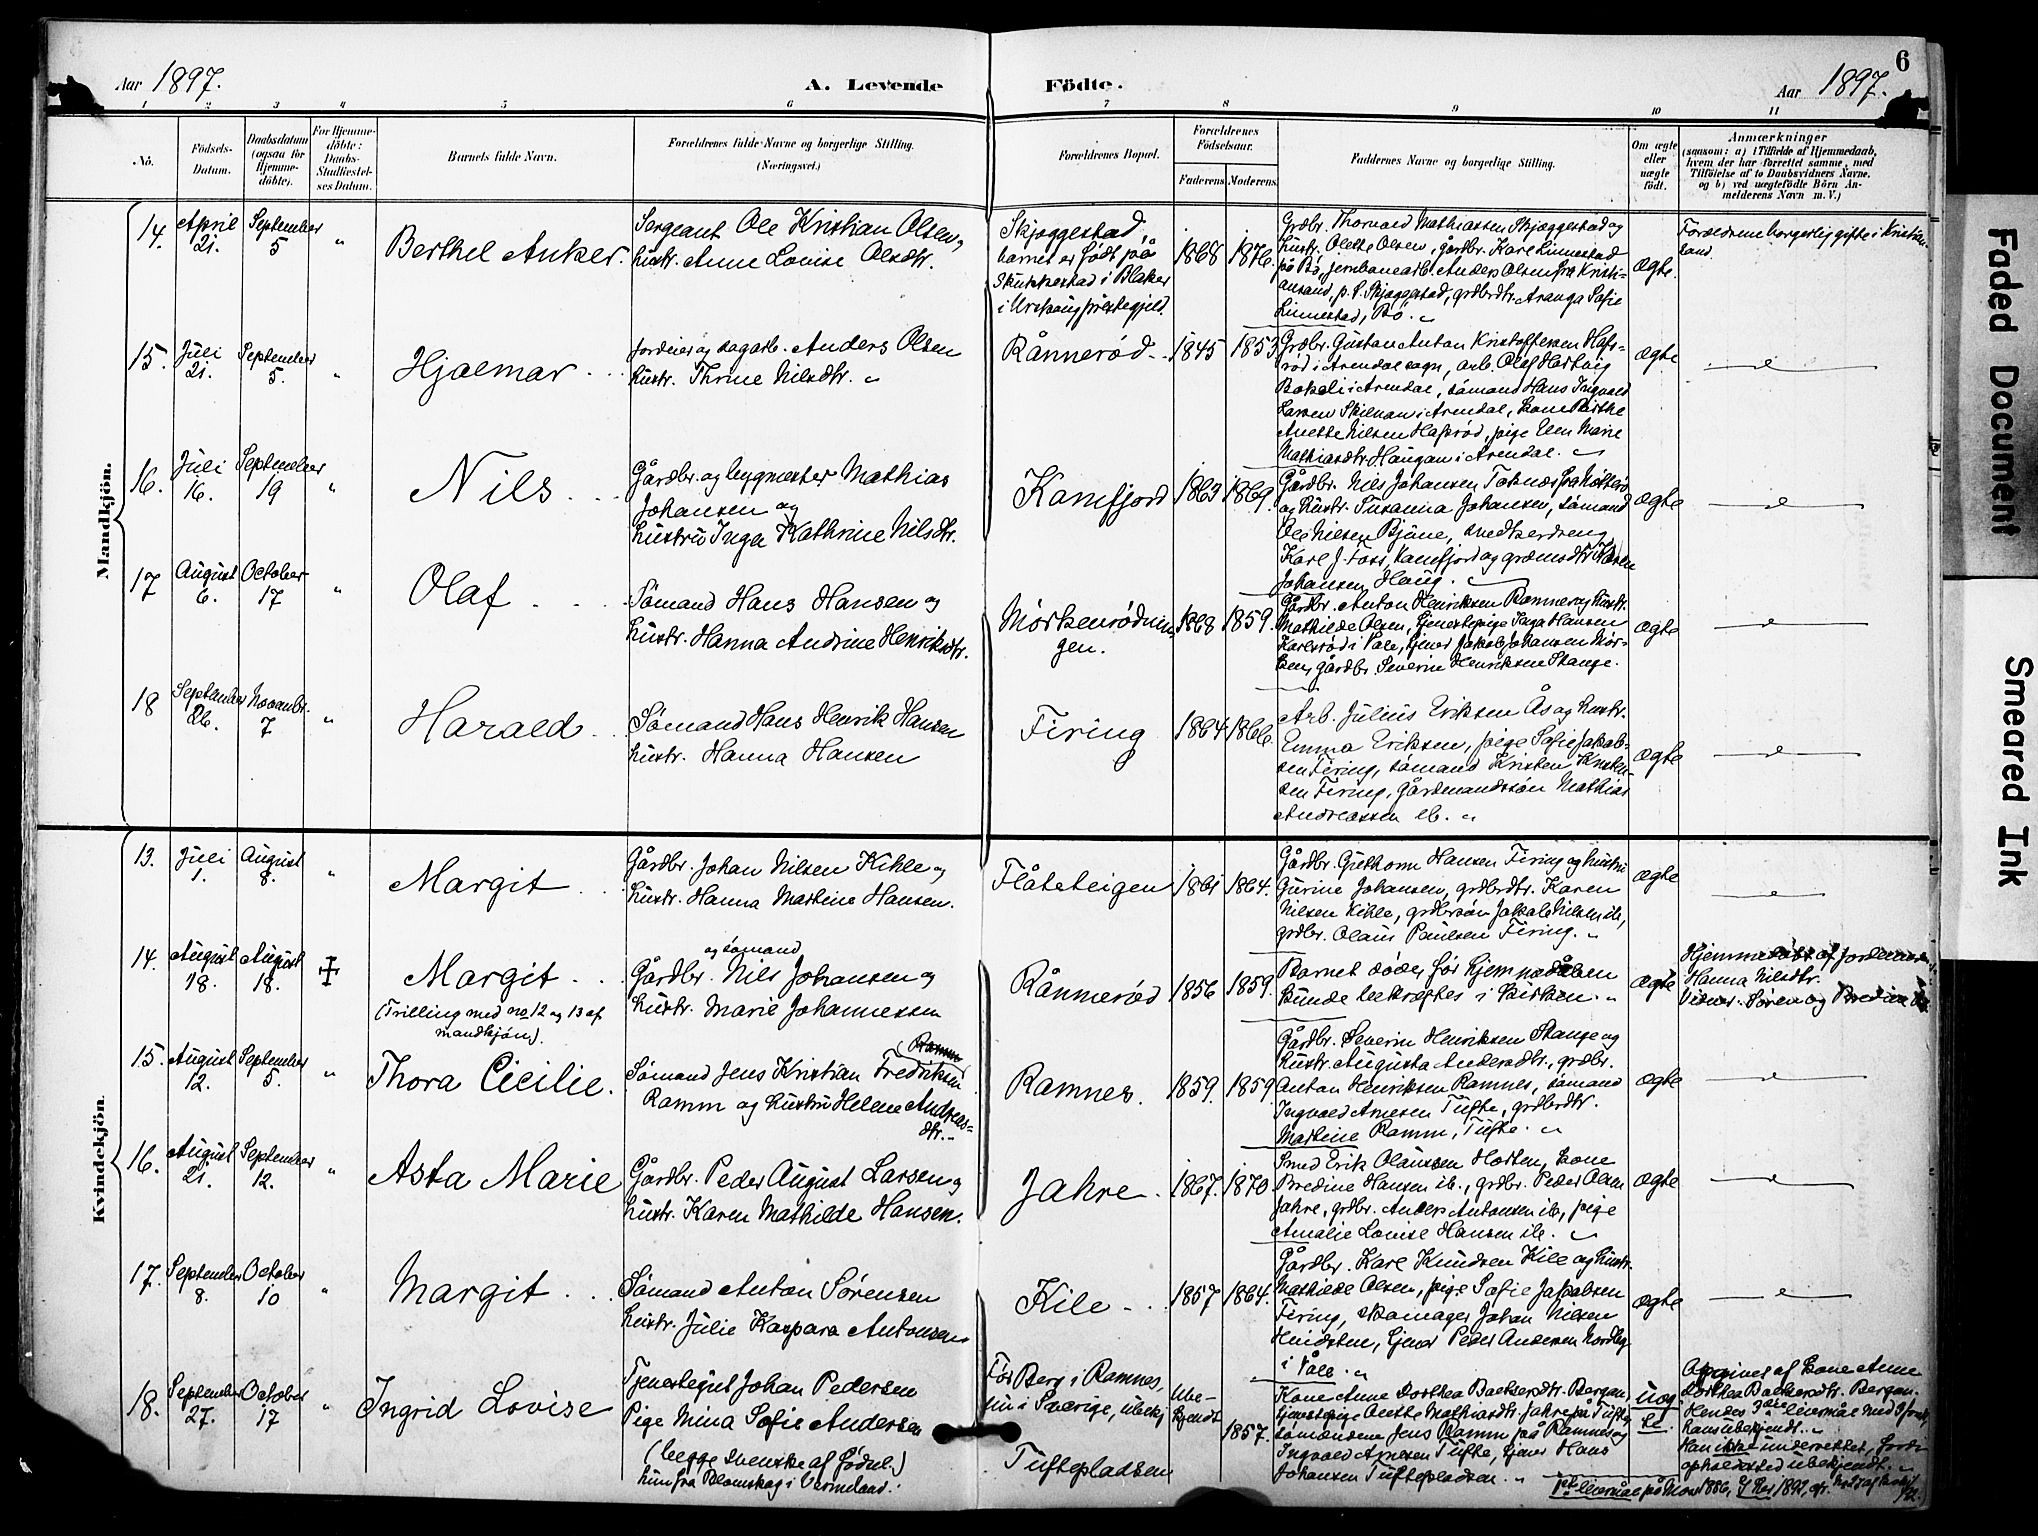 Aar 1897.
A. Levende
Födte.
Aar 1897.
6
1 2 3 4 5 6 7 8 9 10 11
No.
Födsels-
Datum.
Daabsdatum
(ogsaa for
Hjemme-
döbte).
For Hjemme-
döbte:
Daabs-
Stadfæstel-
ses Datum.
Barnets fulde Navn.
Forældrenes fulde Navne og borgerlige Stilling.
(Næringsvei.)
Forældrenes Bopæl.
Forældrenes
Födselsaar.
Faderens
Moderens
Faddernes Navne og borgerlige Stilling.
Om ægte
eller
uægte
født.
Anmærkninger
(saasom: a) i Tilfælde af Hjemmedaab,
hvem der har forrettet samme, med
Tilföielse af to Daabsvidners Navne.
og b) ved uægtefödte Börn An-
melderens Navn m. V.)
Mandkjön.
14.
April
21.
September
5
"
Berthel Anker.
Sergeant Ole Kristian Olsen,
hustr. Anne Lovise Olsdtr.
Skjæggestad,
barnet er født på
i Blaker
1868
1876.
Grdbr. Thorvald Mathiassen Skjæggestad og
hustr. Olette Olsen, gårdbr. Karl Linnestad
på Bö, jernbanearb. Anders Olsen fra Kristi-
ansand, p. t. Skjæggestad, grdbrdtr. Sofie
Linnestad, Bö.
ægte.
Forældrene borgerlig gifte i Kristian-
sand.
15.
Juli
21.
September
5.
"
Hjalmar
jordeier og dagarb. Anders Olsen
hustr. Thrine Nilsdtr.
Rånnerød
1845
1853
Grdbr. Gustav Anton Kristoffersen Hafs-
rød i Arendal sogn, arb. Olaf Hartvig
Bakali i Arendal, sömand Hans Ingvald
Larsen i Arendal, kone Birthe
Anette Nilsen Hafsrød, pige Elen Marie
Mathiasdtr. Haugan i Arendal.
ægte
16.
Juli
16.
September
19
"
Nils
Gårdbr. og bygmester Mathias
Johansen og
hustru Inga Kathrine Nilsdtr.
Kamfjord
1863
1869.
Gårdbr. Nils Johansen
og hustr. Susanna Johansen, sömand
Ole Nilsen Bjüne,
Karl J. Foss, Kamfjord og grdmdtr. Karen
Johansen Haug.
ægte
17
August
6.
October
17
"
Olaf
Sömand Hans Hansen og
hustr. Hanna Andrine Henriksdtr.
Mörkenrødnin-
gen.
1868
1859.
Gårdbr. Anton Henriksen Ramnes og hustr.
Mathilde Olsen, tjenestepige Inga Hansen
Karlsrød i Våle, tjener Jakob Johansen Mör-
ken, gårdbr. Severin Henriksen Stange.
ægte
18
September
26.
Novembr.
7
"
Harald
Sömand Hans Henrik Hansen
hustr. Hanna Hansen
Firing
1864
1866.
Arb. Julius Eriksen Ås og hustr.
Emma Eriksen, pige Sofie Jakob-
sen Firing, sömand Kristen Kristen-
sen Firing, Gårdmandssön Mathias
Andreassen ib.
ægte
Kvindekjön.
13.
Juli
1.
August
8.
"
Margit
Gårdbr. Johan Nilsen Kihle og
hustr. Hanna Martine Hansen.
Flåteteigen
1861
1864.
Gårdbr. Guthorm Hansen Firing og hustru
Gurine Johansen, grdbrdtr. Karen
Nilsen Kihle, grdbrsön Jakob Nilsen ib,
grdbr. Olaus Paulsen Firing.
ægte
14.
August
18.
August
18.
Margit
(Trilling med no 12 og 13 af
mandkjön).
og sömand
Gårdbr. Nils Johansen og
hustr. Marie Johannessen
Rånnerød
1856
1859.
Barnet döde, för hjemmedåben
kunde bekræftes i kirken.
ægte
Hjemmedöbt af Jordemor
Hanna Nilsdtr.
Vidner: Sören og Bredine
15.
August
12.
September
5.
"
Thora Cicilie.
Sömand Jens Kristian Fredriksen
Ramm og hustru Helene Andreas-
dtr.
Ramnes.
1859.
1859
Gårdbr. Severin Henriksen Stange og
hustr. Augusta Andersdtr., grdbr.
Anton Henriksen Ramnes, sömand
Ingvald Arnesen Tufte, grdbrdtr.
Martine Ramm, Tufte.
ægte
16.
August
21.
September
12.
"
Asta Marie
Gårdbr. Peder August Larsen og
hustr. Karen Mathilde Hansen.
Jahre
1867.
1870
Smed Erik Olaussen Horten, kone
Bredine Hansen ib., grdbr. Peder Olsen
Jahre, grdbr. Anders Antonsen ib, pige
Amalie Lovise Hansen ib.
ægte
17.
September
8.
October
10
"
Margit
Sömand Anton Sørensen
hustr. Julie Kaspara Antonsen
Kile
1857
1864.
Gårdbr. Karl Knudsen Kile og hustr.
Mathilde Olsen, pige Sofie Jakobsen
Firing, skomager Johan Nilsen
Hvidsten, tjener Peder Andersen Nordby
i Våle.
ægte
18.
September
27.
October
17
"
Ingrid Lovise
Tjenestegut Johan Pedersen
Pige Mina Sofie Andersen
(begge svenske af födsel.)
hun fra Blomskog i Vermeland.
Før Berg i Ramnes,
nu i Sverige, ubekj.
Tuftepladsen
Ube-
kjendt
1857.
Kone Anne Dorthea Baltsersdtr. Bergan,
tjenestepige Olette Mathiasdtr. Jahre på Tufte,
sömændene Jens Ramm på Ramnes og
Ingvald Arnesen Tufte, tjener Hans
Johansen Tuftepladsen.
uæg-
te.
Opgives af kone Anne
Dorthea Baltsersdtr. Bergan.
Hendes 3die leiermål med
hans ubekjendt.
Han ikke underrettet, fordi
opholdssted ubekjendt.
Faded Document
Smeared Ink